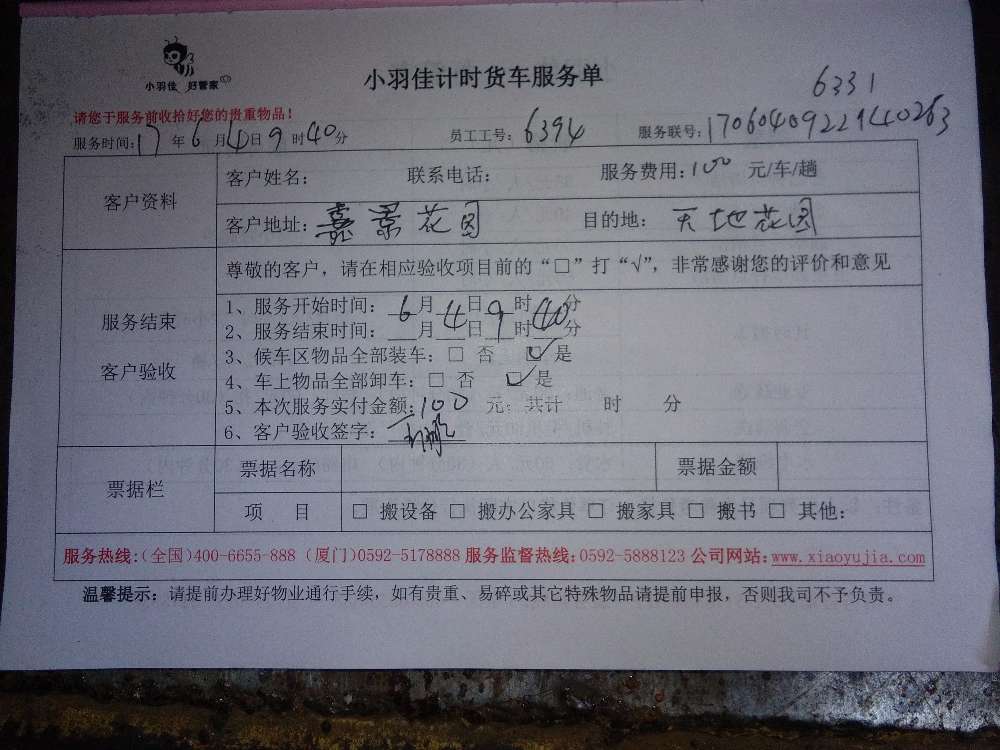 小羽佳 好管家
小羽佳计时货车服务单
6331
请您于服务前收拾好您的贵重物品！
服务时间：17年6月4日9时40分 员工工号：6394 服务联号：1706040922940263
客户资料
客户姓名： 联系电话： 服务费用：100 元/车/趟
客户地址：嘉景花园 目的地：天地花园
服务结束
客户验收
尊敬的客户，请在相应验收项目前的“□”打“√”，非常感谢您的评价和意见
1、服务开始时间：6月4日9时40分
2、服务结束时间：__月__日__时__分
3、候车区物品全部装车：□ 否 ☑ 是
4、车上物品全部卸车：□ 否 ☑ 是
5、本次服务实付金额：100 元；共计 时 分
6、客户验收签字：
票据栏
票据名称 票据金额
项 目 □ 搬设备 □ 搬办公家具 □ 搬家具 □ 搬书 □ 其他：
服务热线：(全国)400-6655-888 (厦门)0592-5178888 服务监督热线：0592-5888123 公司网站：www.xiaoyujia.com
温馨提示：请提前办理好物业通行手续，如有贵重、易碎或其它特殊物品请提前申报，否则我司不予负责。